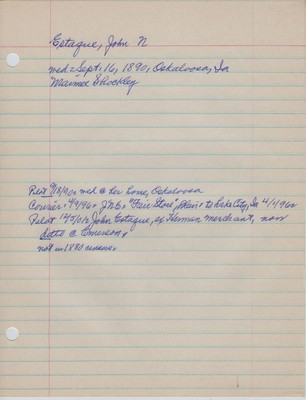 Estaque, John N
md = Sept. 16, 1890, Oskaloosa, Ia
Maimee Shockley
9/18/90: md @ her home, Oskaloosa
Courier: 4/9/96: J.N.E. "Fair Store", to Lake City, Ia 4/4/96
Pilot John Estaque, ex Herman merchant, now
@ Emerson,
not in 1880 census.